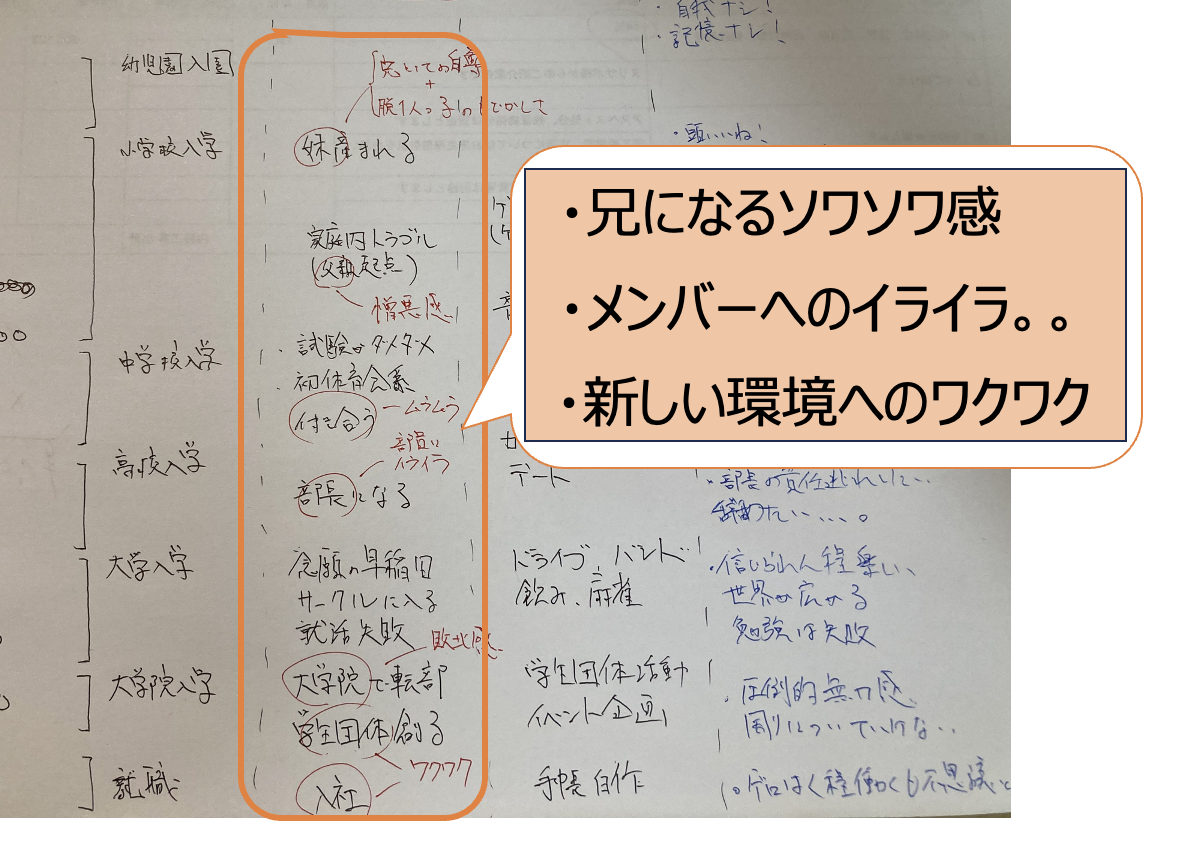 ・自我ナシ！
・記憶ナシ！
幼児園入園
兄としての自尊
+
脱1人っ子
・頭いいね！
小学校入学
妹産まれる
・兄になるソワソワ感
・メンバーへのイライラ。。
・新しい環境へのワクワク
家庭内トラブル
(父親起点)
憎悪感
中学校入学
・試験がダメダメ
・初体育会系
付き合う
ームラムラ
部員に
イライラ
高校入学
部長になる
デート
・部長の責任逃れしたい..
辞めたい....。
大学入学
念願の早稲田
サークルに入る
就活失敗
敗北感
ドライブ、バンド
飲み、麻雀
・信じられん程楽しい、
世界が広がる
勉強は失敗
大学院入学
大学院で転部
学生団体創る
学生団体活動
イベント企画
・圧倒的無力感
周りについていけない..
ワクワク
就職
入社
手帳自作
・ゲロはく程働くも不思議と